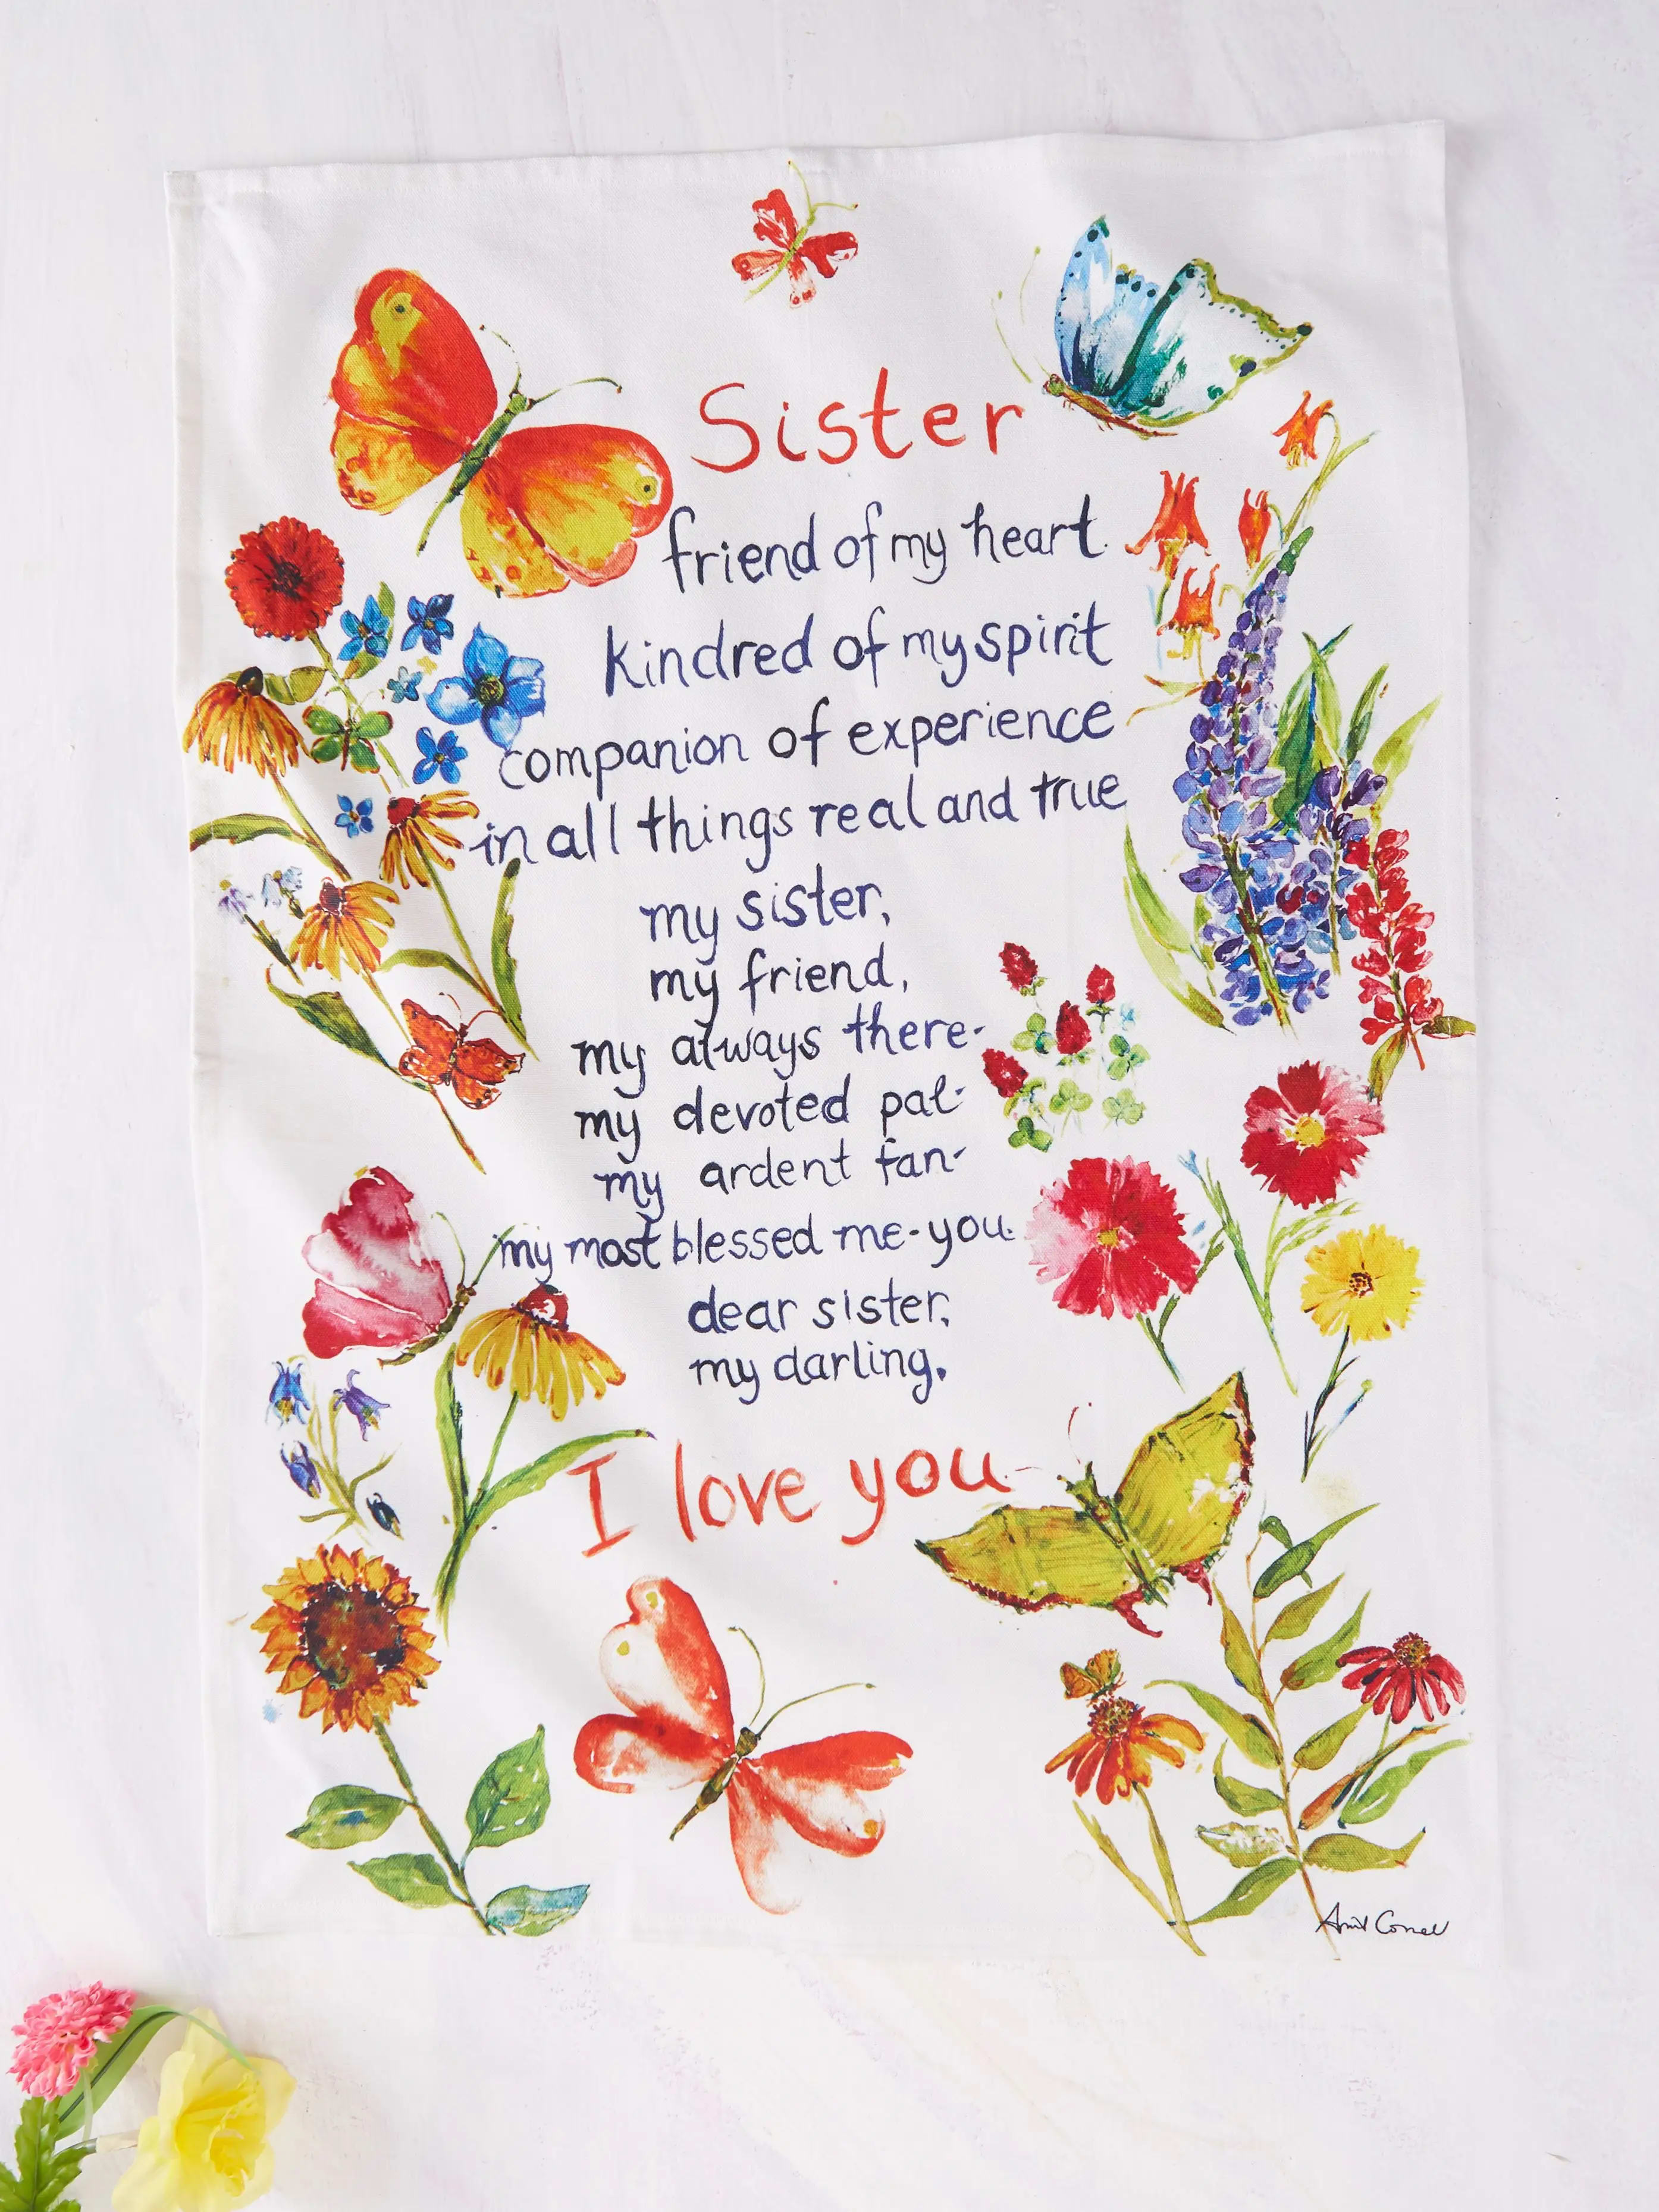 Sister
friend of my heart.
kindred of my spirit
companion of experience
in all things real and true
my sister,
my friend,
my always there-
my devoted pal-
my ardent fan-
my most blessed me-you.
dear sister,
my darling.
I love you